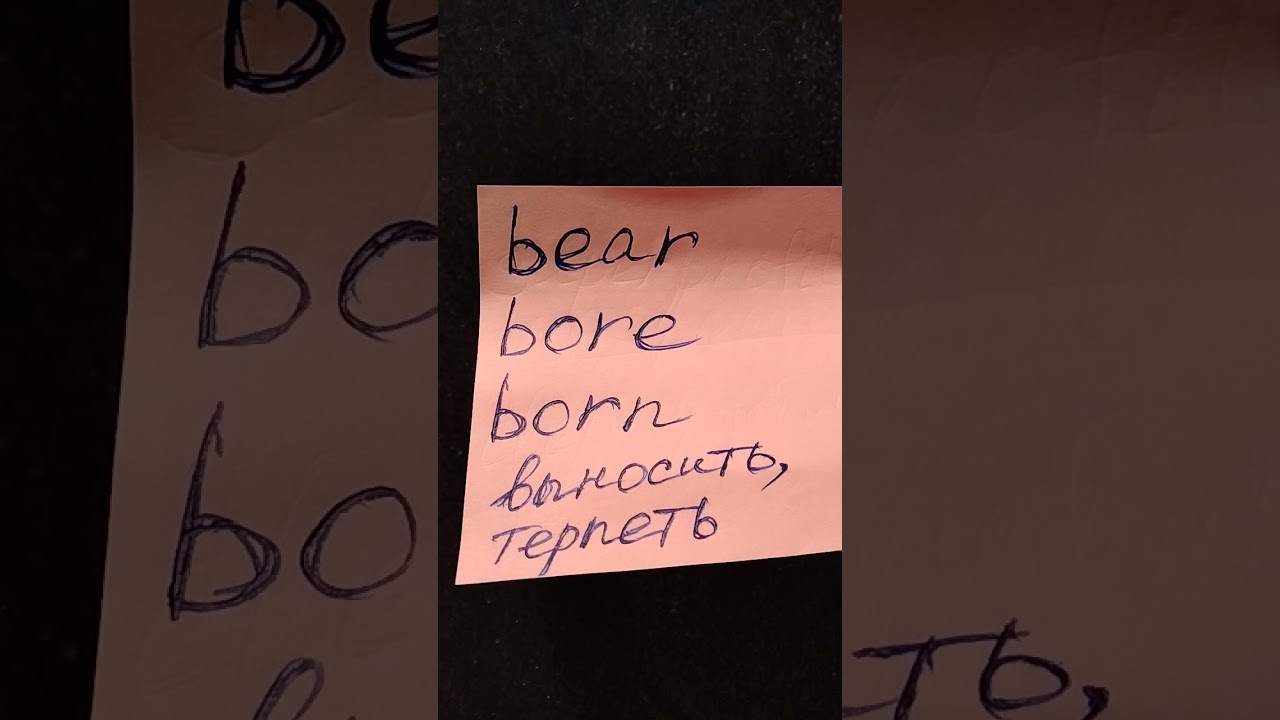 bear
bore
born
выносить,
терпеть